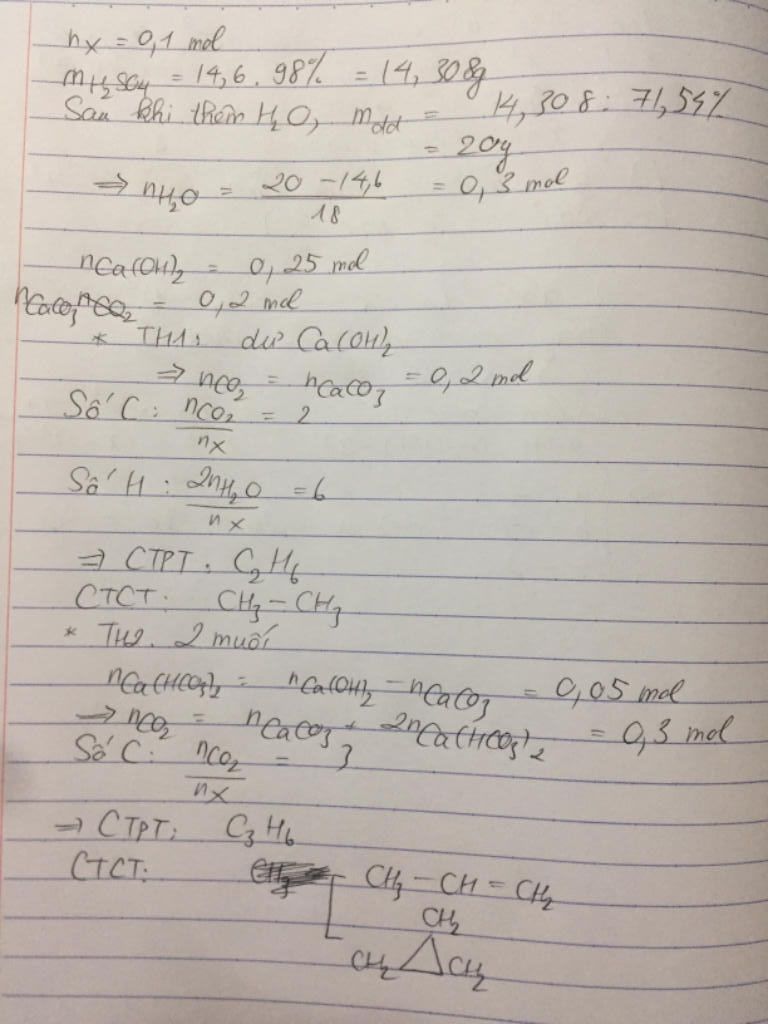 nX = 0,1 mol
mH2SO4 = 14,6 . 98% = 14,308g
Sau khi thêm H2O, mdd = 14,308 : 71,54%
= 20g
=> nH2O = (20 - 14,6)/18 = 0,3 mol
nCa(OH)2 = 0,25 mol
nCaCO3 nCO2 = 0,2 mol
* TH1: dư Ca(OH)2
=> nCO2 = nCaCO3 = 0,2 mol
Số C: nCO2/nX = 2
Số H: 2nH2O/nX = 6
=> CTPT: C2H6
CTCT: CH3 - CH3
* TH2. 2 muối
nCa(HCO3)2 = nCa(OH)2 - nCaCO3 = 0,05 mol
=> nCO2 = nCaCO3 + 2nCa(HCO3)2 = 0,3 mol
Số C: nCO2/nX = 3
=> CTPT: C3H6
CTCT: CH3 - CH = CH2
CH2
CH2 CH2